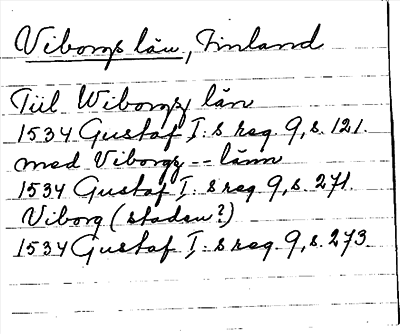 Viborgs län, Finland
Till Wiborgz län
1534 Gustaf I:s reg. 9, s. 121.
med Viborgz -- länn
1534 Gustaf I:s reg. 9, s. 271.
Viborg (staden?)
1534 Gustaf I:s reg. 9, s. 273.